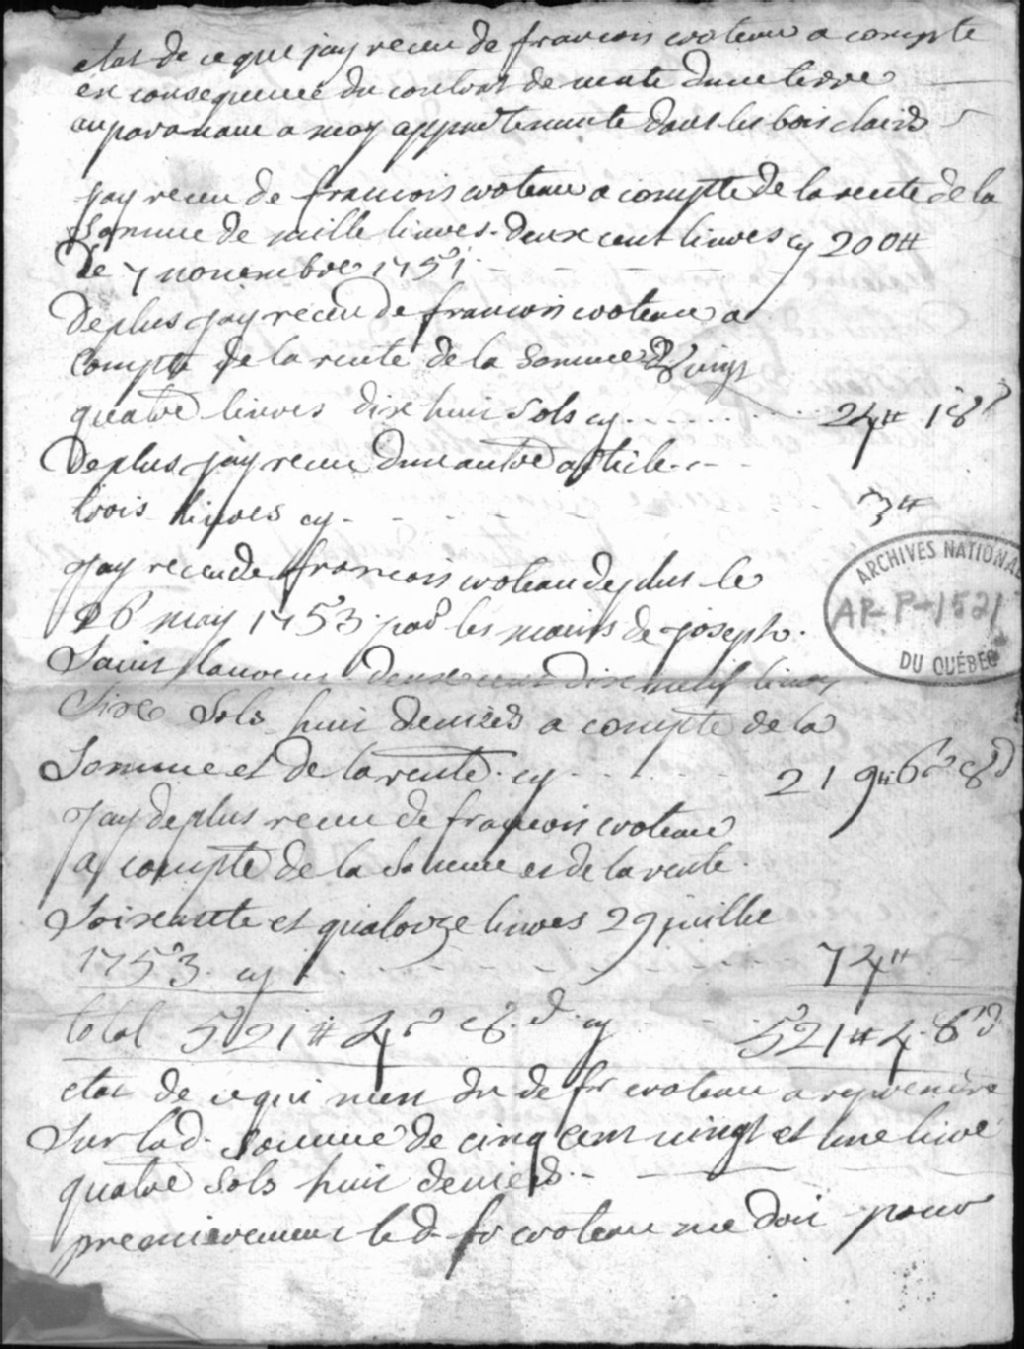 etat de ce que jay receu de francois croteau a compte
en consequence du contrat de vente dune terre
auparavant a moy appartenante dans les bois clairs
jay receu de francois croteau a compte de la rente de la
somme de mille livres deux cent livres cy 200#
le 7 novembre 1751
deplus jay receu de francois croteau a
compte de la rente de la somme de vingt
quatre livres dix huit sols cy 24# 18s
deplus jay receu dun autre article
trois livres cy 3#
jay receu de francois croteau deplus le
26 may 1753 par les mains de joseph
saint sauveur deux cent dix neuf livres
six sols huit deniers a compte de la
somme et de la rente cy 219# 6s 8d
jay deplus receu de francois croteau
a compte de la somme et de la rente
soixante et quatorze livres 29 juillie
1753 cy 74#
total 521# 4s 8d cy 521# 4s 8d
etat de ce qui mest du de fr croteau a reprendre
sur lad somme de cinq cent vingt et une livre
quatre sols huit deniers
premierement led fr croteau me doit pour
ARCHIVES NATIONALES
AP-P-1521
DU QUÉBEC